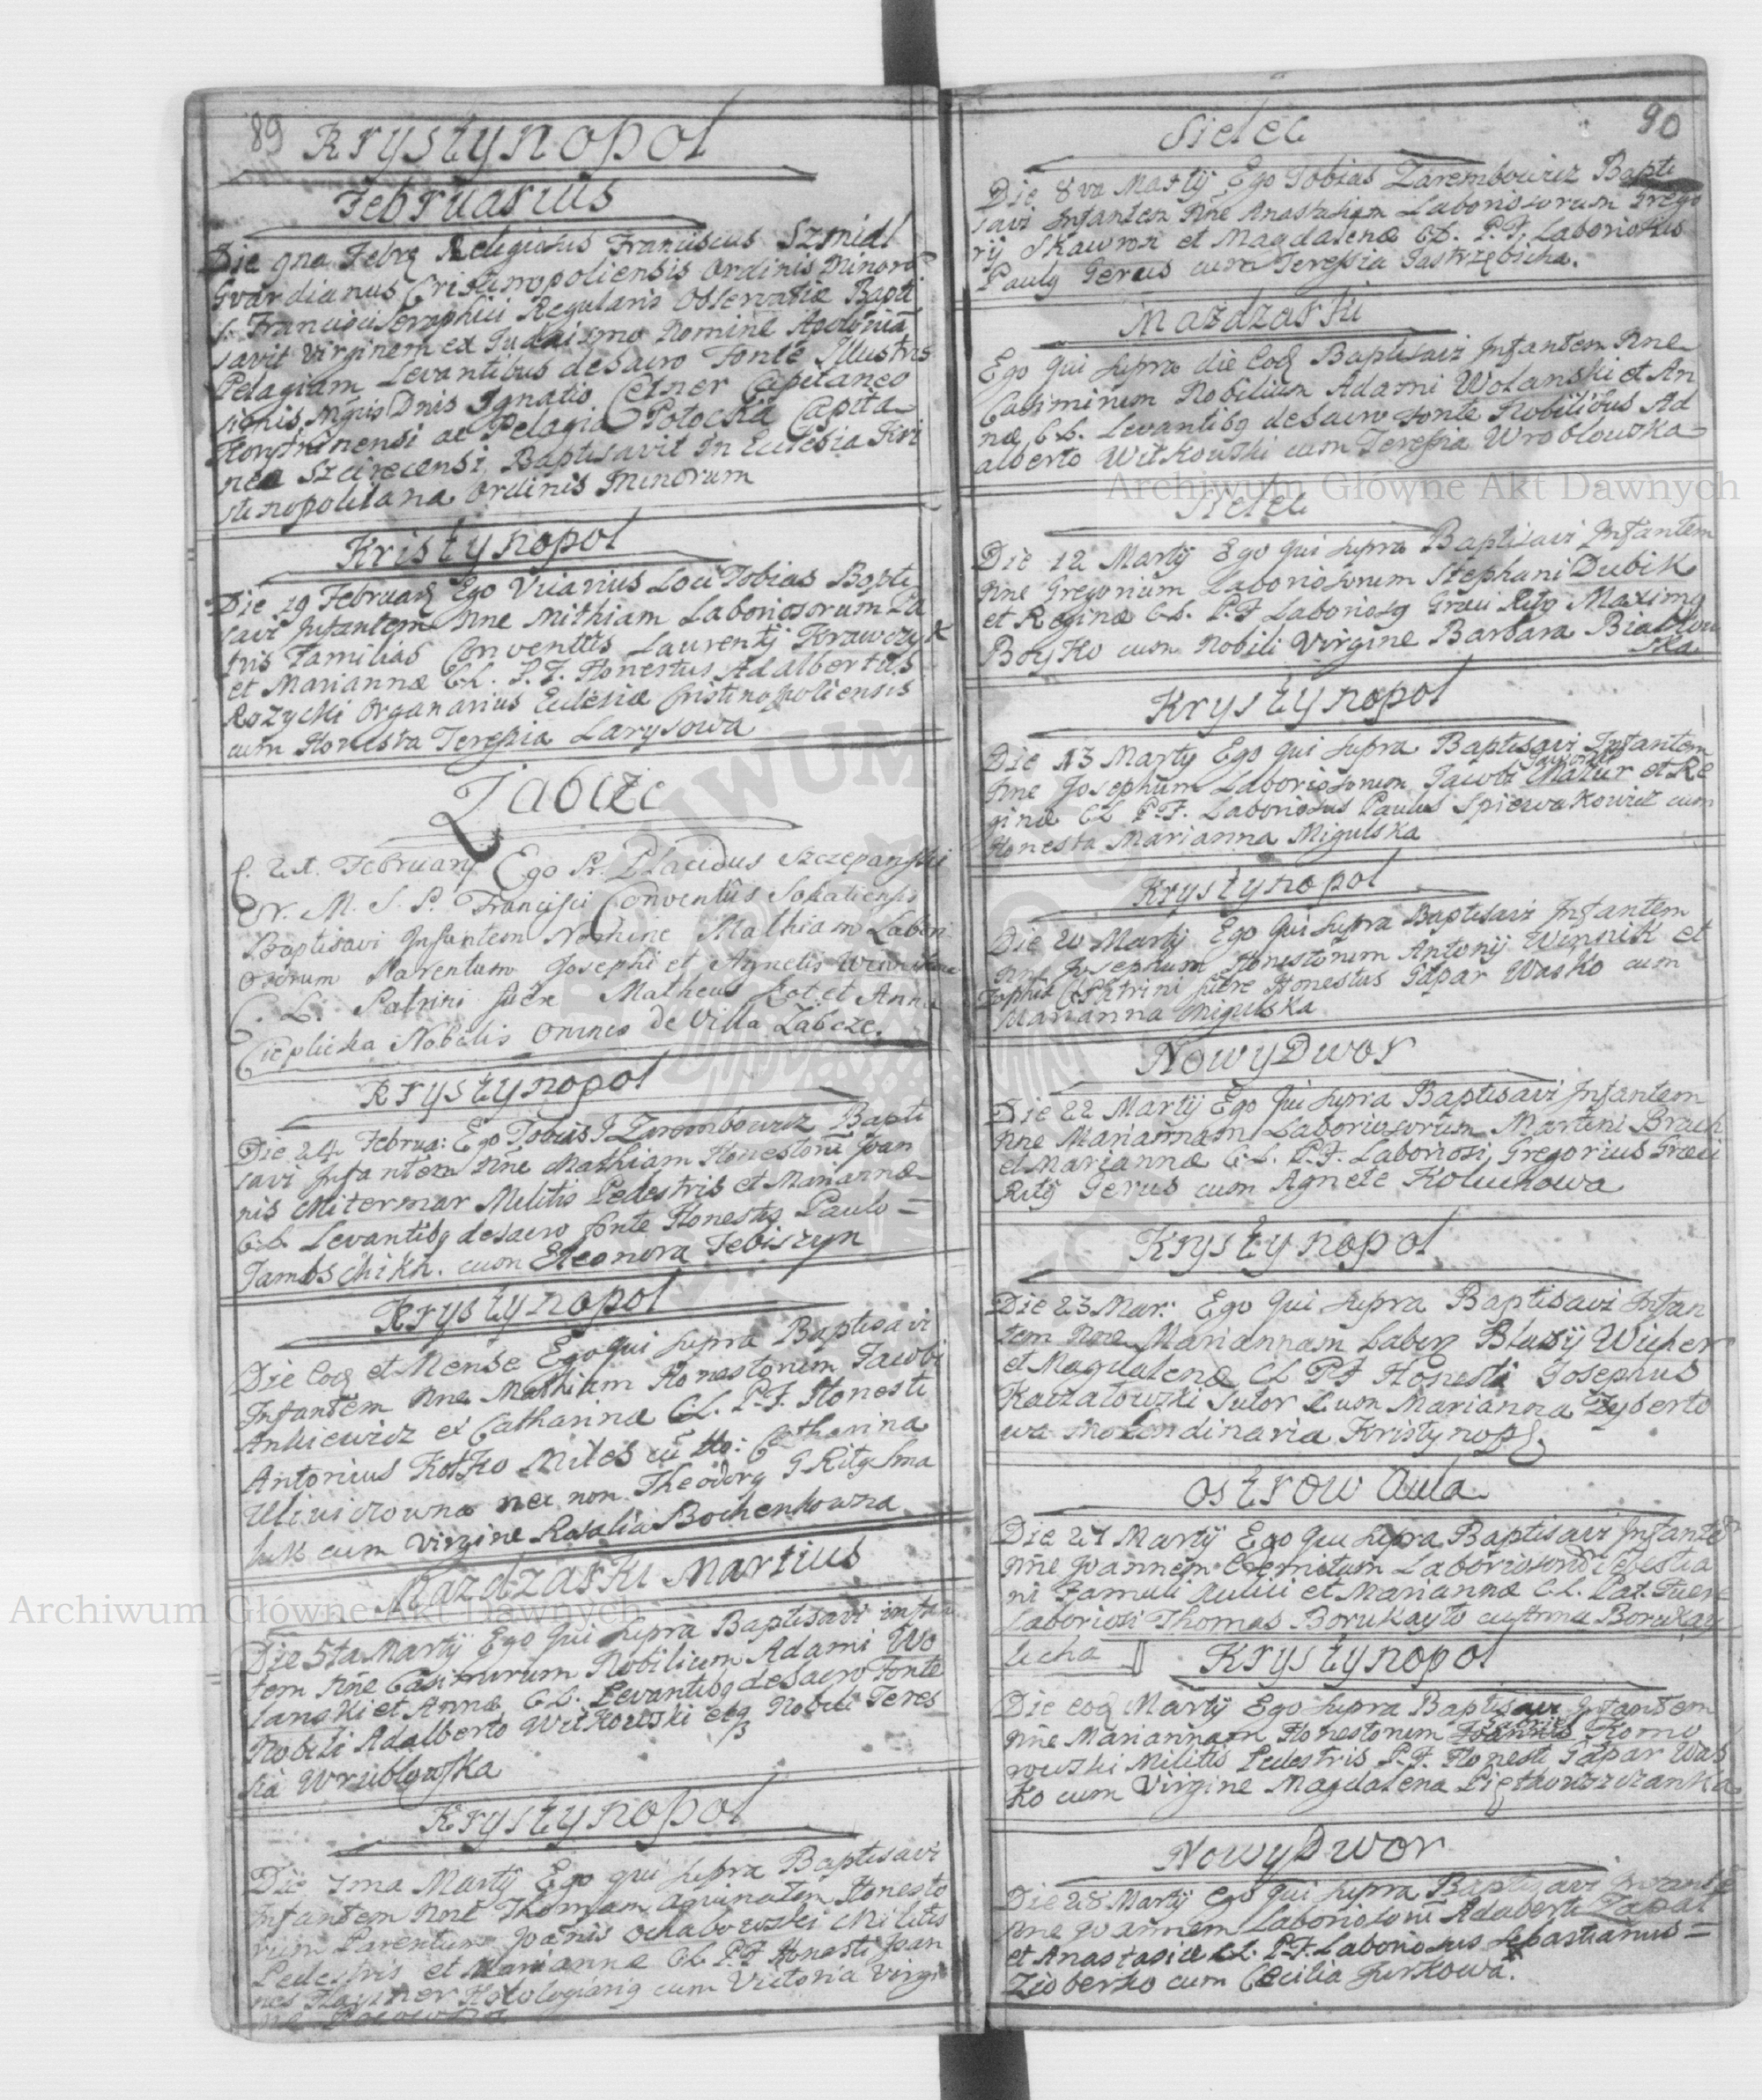 89
Krystynopol
Februarius
Die 9na Febrg Religiosus Franciscus Szmidl
Gvardianus Cristinopoliensis Ordinis Minorū
S. Francisci Seraphici Regularis Observatiæ Bapti
savit Virginem ex Iudaismo Nomine Apoloniā
Pelagiam Levantibus de Sacro Fonte Illustris
simis Mgnis Dnis Ignatio Cetner Capitaneo
Korytnicensi ac Pelagia Potocka Capita
nea Szcirecensi, Baptisavit in Ecclesia Kri
stinopolitana Ordinis Minorum
Kristynopol
Die 19 Februarg Ego Vicarius Loci Tobias Bapti
savi Infantem Nne Mathiam Laboriosorum Pa
tris Familias Conventus Laurentij Krawczyk
et Mariannæ CL. P.F. Honestus Adalbertus
Rozycki Organarius Eclesiæ Cristinopoliensis
cum Honesta Teressia Larysowa
Zabcze
Februarij Ego Fr. Placidus Szczepanski
M. S. P. Francisci Conventûs Sokaliensis
Baptisavi Infantem Nomine Mathiam Labori
osorum Parentum Josephi et Agnetis
C. L. Patrini fuere Matheus Kot et Anna
Cieplicka Nobilis omnes de Villa Zabcze.
Krystynopol
Die 24 Februa: Ego Tobias J Zarembowicz Bapti
savi Infantem Nne Mathiam Honestorū Joan
nis Mitermar Militis Pedestris et Mariannæ
C.L. Levantibg de sacro fonte Honestis Paulo =
Jambschikh. cum Eleonora Febiszyn
Krystynopol
Die Eoq et Mense Ego qui supra Baptisavi
Infantem Nne Mathiam Honestorum Jacobi
Ankiewicz et Catharinæ CL. P.F. Honesti
Antonius Kotko Miles cū Ho: Catharina
Uliniczowna nec non Theodorg G Ritg Sma
luk cum Virgine Rosalia Bochenkowna
Mazdzarki Martius
Die 5ta Martij Ego Qui supra Baptisavi infan
tem Nne Casimirum Nobilium Adami Wo
lanski et Annæ C.L. Levantibg de Sacro Fonte
Nobili Adalberto Witkowski etg Nobili Teres
sia Wrublewska
Krystynopol
Die 7ma Martij Ego qui supra Baptisavi
Infantem Nne Thomam Aquinatem Honesto
rum Parentum Joānis Ochabowski Militis
Pedestris et Mariannæ CL P.F. Honesti Joan
nes Haysner Horologiarig cum Victoria Virgi
ne
90
Sielec
Die 8va Martij Ego Tobias Zarembowicz Bapti
savi Infantem Nne Anastasiam Laboriosorum Grego
rij Skawron et Magdalenæ CL. P.F. Laboriosus
Paulg Gerus cum Teressia Jastrzębicka.
Mazdzarki
Ego Qui supra die Eoq Baptisavi Infantem Nne
Casimirum Nobilium Adami Wolanski et An
næ C.L. Levantibg de sacro fonte Nobilibus Ad
alberto Witkowski cum Teressia Wroblowska
Sielec
Die 12 Martij Ego Qui supra Baptisavi Infantem
Nne Gregorium Laboriosorum Stephani Dubik
et Reginæ C.L. P.F Laboriosg Græci Ritg Maximg
Boyko cum Nobili Virgine Barbara
ska
Krystynopol
Die 13 Martij Ego qui supra Baptisavi Infantem
Nne Josephum Laboriosorum Jacobi Mazur et Re
ginæ CL P.F. Laboriosus Paulus Spiewakowicz cum
Honesta Marianna Migulska
Krystynopol
Die 20 Martij Ego Qui supra Baptisavi Infantem
Nne Josephum Honestorum Antonij Winnik et
Sophiæ CL Patrini fuere Honestus Gaspar Wasko cum
Marianna Migulska
Nowy Dwor
Die 22 Martij Ego Qui supra Baptisavi Infantem
Nne Mariannam Laboriosorum Martini Bruch
et Mariannæ C.L. P.F. Laboriosi, Gregorius Græci
Ritg Gerus cum Agnete Koluckowa
Krystynopol
Die 23 Mar: Ego Qui supra Baptisavi Infan
tem Nne Mariannam Labor Blasij Wicher
et Magdalenæ CL P.F Honesti Josephus
Kaczalowski Sutor Cum Marianna Zyberto
wa Molendinaria Kristynop
Ostrow Aula
Die 27 Martij Ego Qui supra Baptisavi Infantē
Nne Joannem Eremitam Laboriosorū Sebestia
ni Famuli Aulici et Mariannæ C.L. Pat. Fuere
Laboriosi Thomas Borukayło cum Anna Borukay
licha
Krystynopol
Die eoq Martij Ego supra Baptisavi Infantem
Nne Mariannam Honestorum Gabriel Homo
rowski Militis Pedestris P.F. Honesti Gaspar Was
ko cum Virgine Magdalena
Nowy Dwor
Die 28 Martij Ego Qui supra Baptisavi Infantē
Nne Joannem Laboriosorū Adalberti Zapał
et Anastasiæ CL. P.F. Laboriosus Sebastianus =
Zioberko cum Cæcilia Jurkowa.
Archiwum Główne Akt Dawnych
Archiwum Główne Akt Dawnych